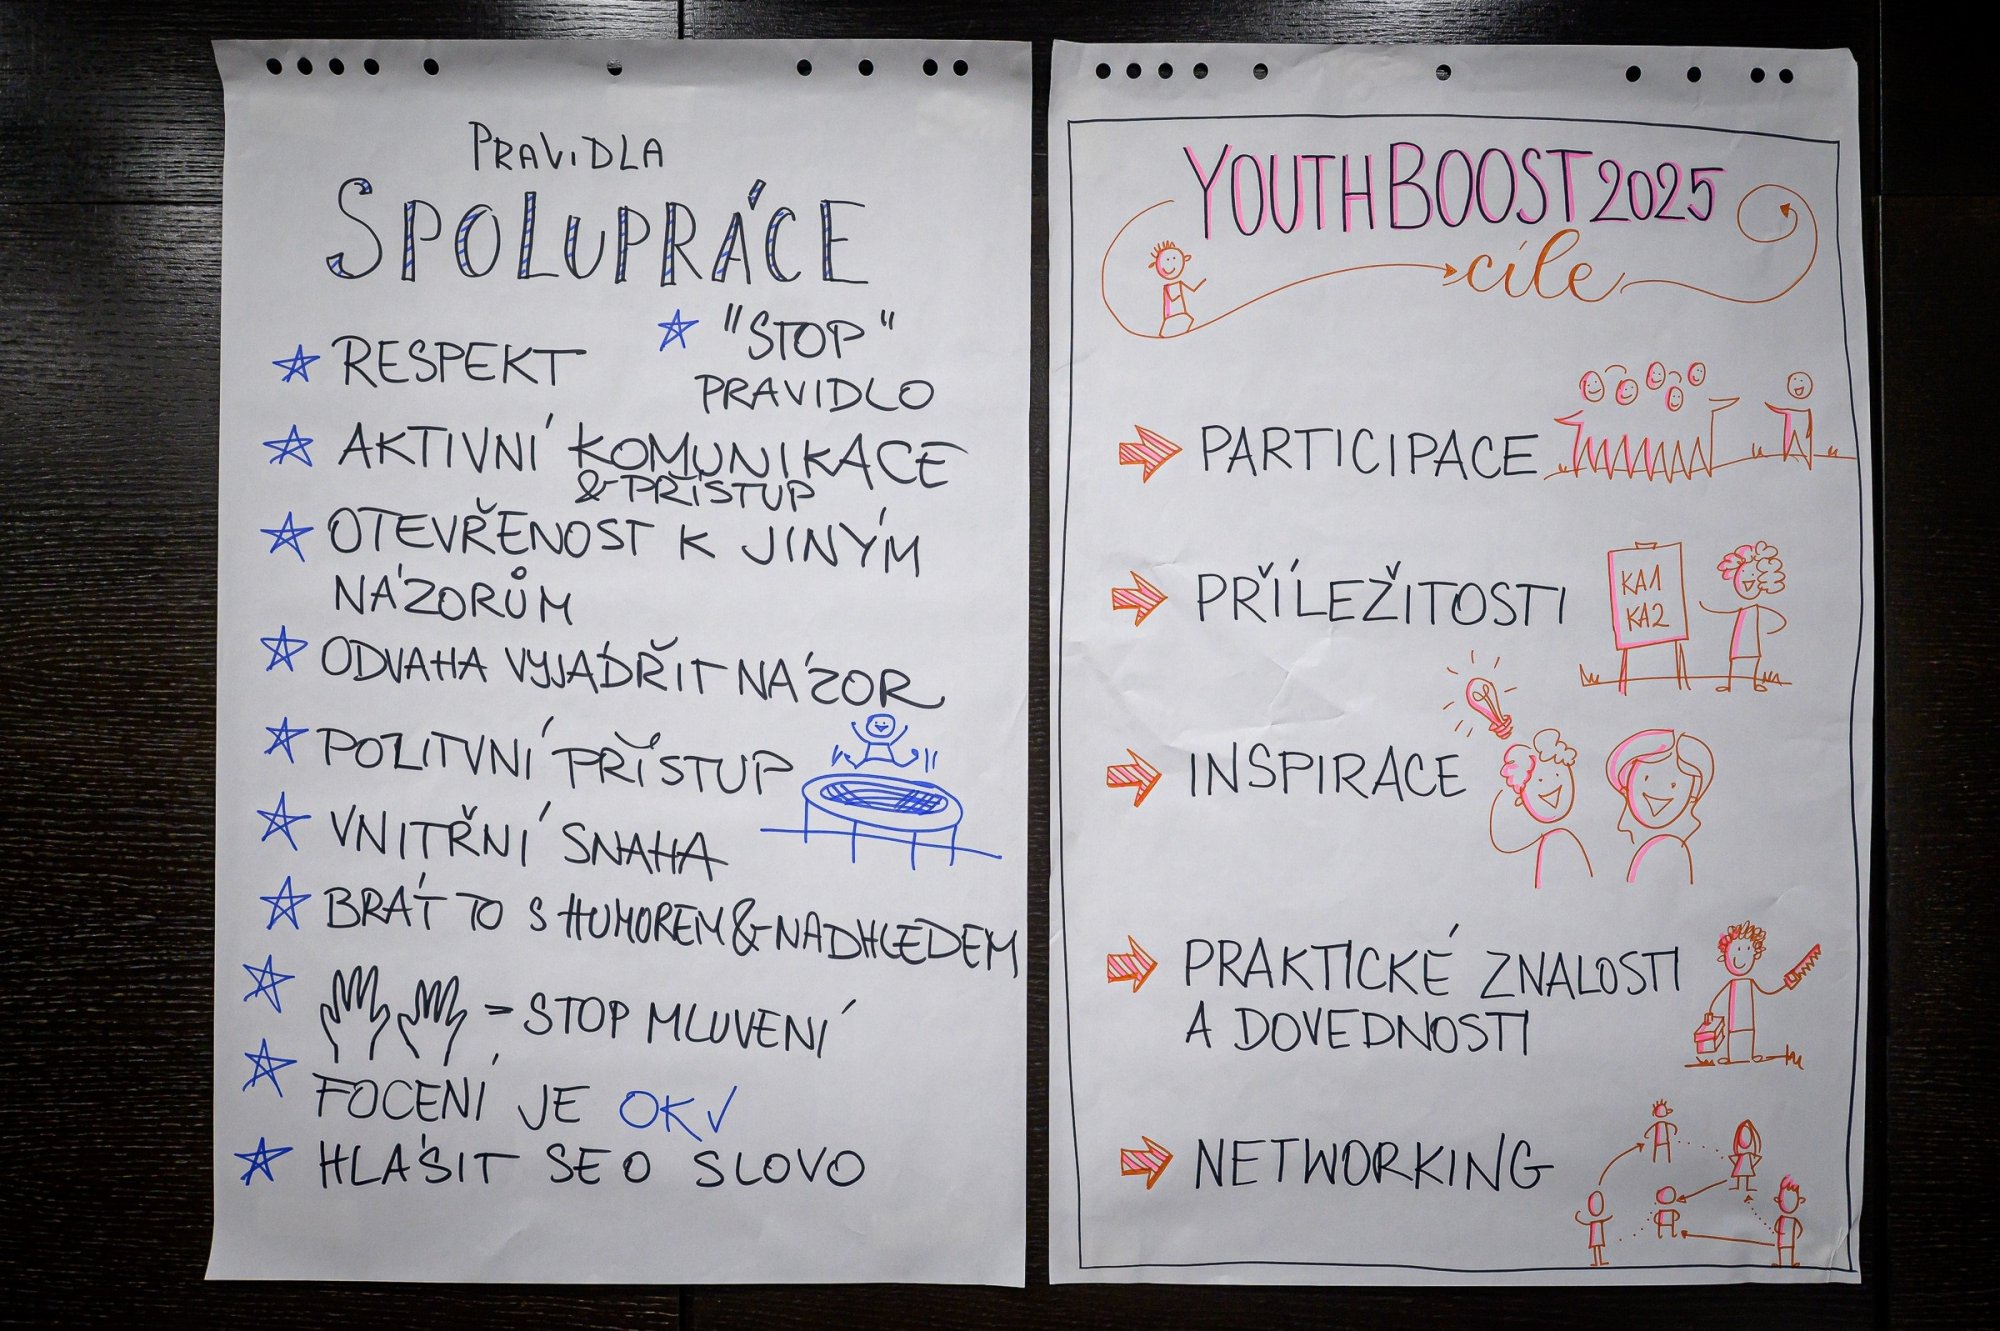 PRAVIDLA
SPOLUPRÁCE
RESPEKT
"STOP"
PRAVIDLO
AKTIVNÍ KOMUNIKACE
& PŘÍSTUP
OTEVŘENOST K JINÝM
NÁZORŮM
ODVAHA VYJÁDŘIT NÁZOR
POZITVNÍ PŘÍSTUP
VNITŘNÍ SNAHA
BRÁT TO S HUMOREM & NADHLEDEM
= STOP MLUVENÍ
FOCENÍ JE OK ✓
HLÁSIT SE O SLOVO
YOUTH BOOST 2025
cíle
PARTICIPACE
PŘÍLEŽITOSTI
KA1
KA2
INSPIRACE
PRAKTICKÉ ZNALOSTI
A DOVEDNOSTI
NETWORKING